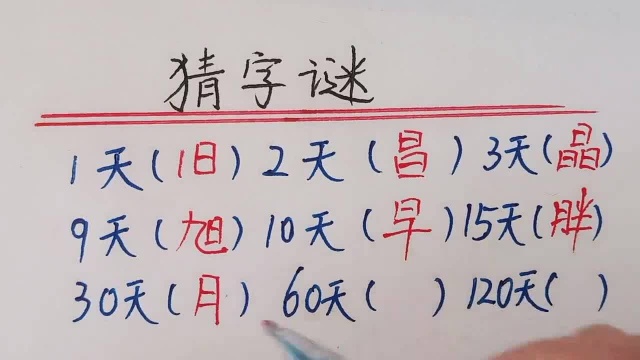 猜字谜
1天(旧) 2天(昌) 3天(晶)
9天(旭) 10天(早) 15天(胖)
30天(月) 60天( ) 120天( )